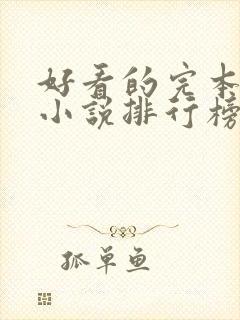 好看的完本
小说排行榜
孤单鱼